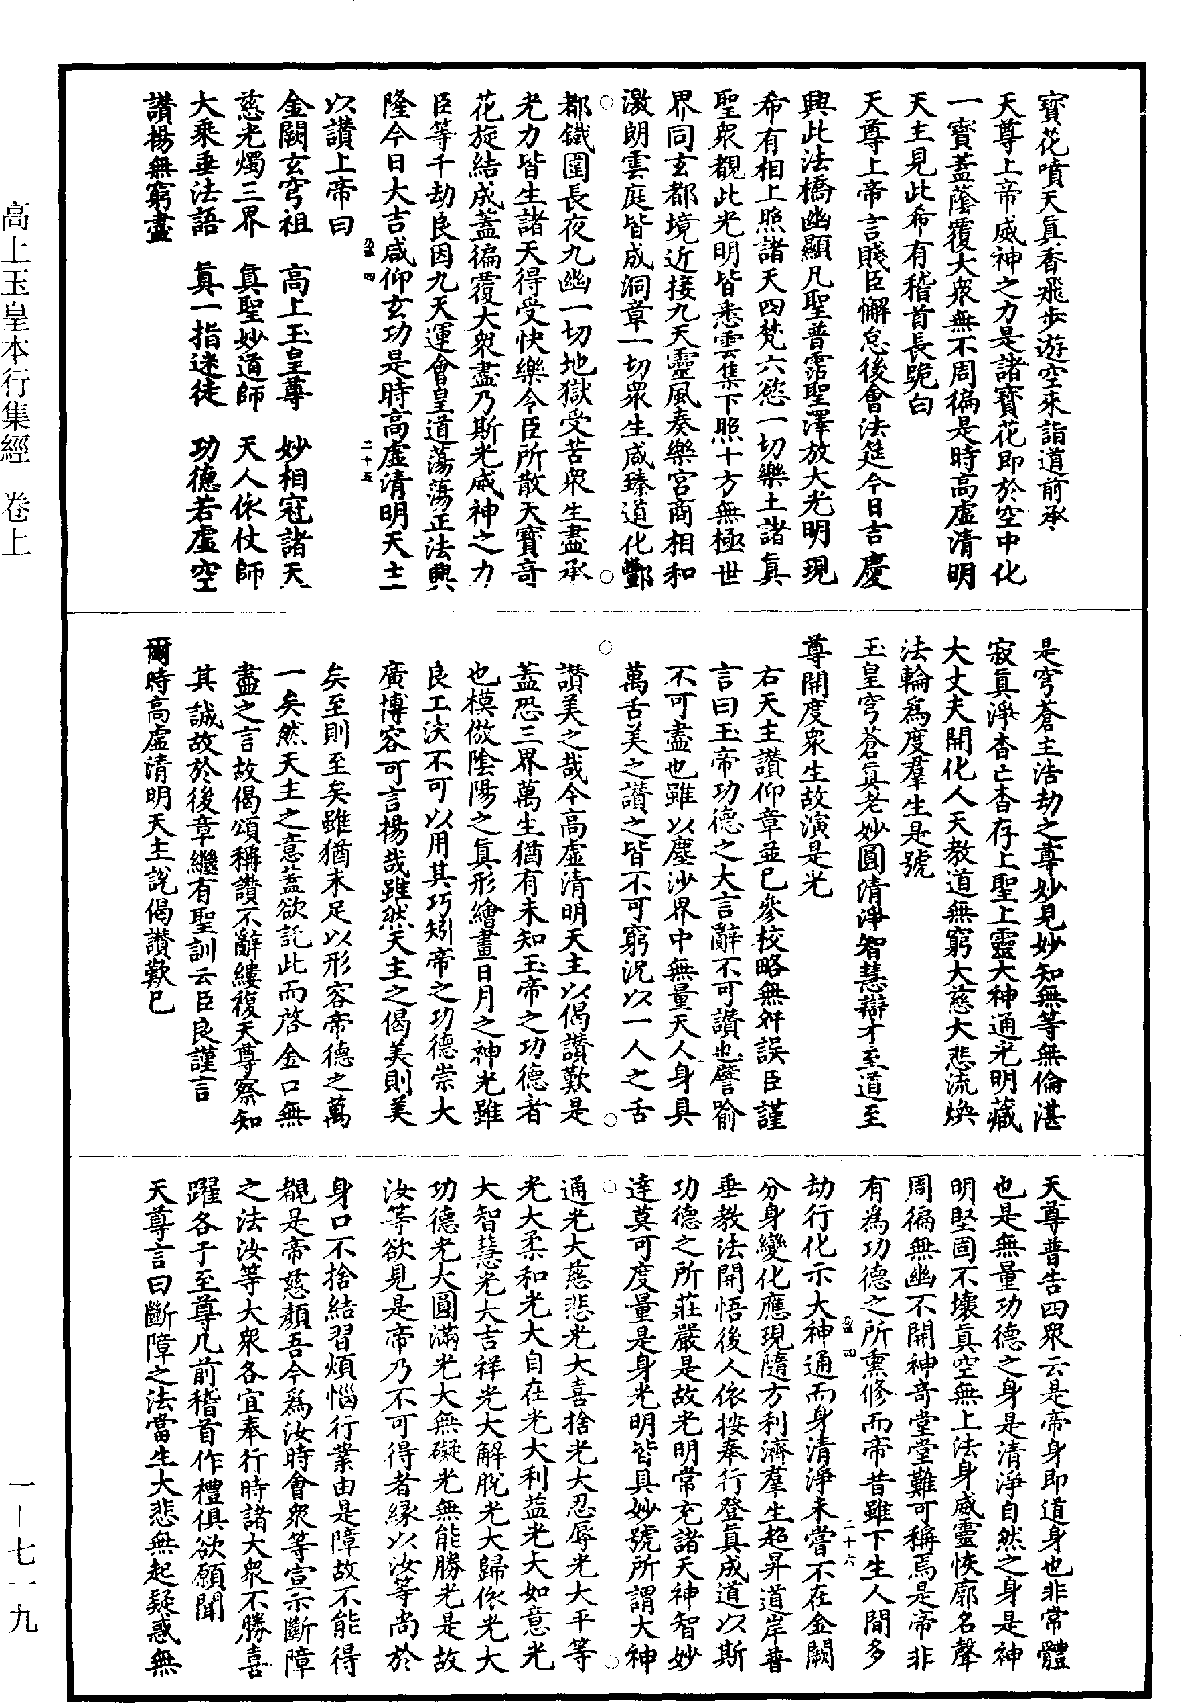 寶花噴天真香飛步遊空來詣道前承
天尊上帝威神之力是諸寶花即於空中化
一寶蓋蔭覆大衆無不周徧是時高虛清明
天主見此希有稽首長跪白
天尊上帝言賤臣懈怠後會法筵今日吉慶
興此法橋幽顯凡聖普霑聖澤放大光明現
希有相上照諸天四梵六慾一切樂土諸眞
聖衆覩此光明皆悉雲集下照十方無極世
界同玄都境近接九天靈風奏樂宮商相和
激朗雲庭皆成洞章一切衆生咸臻道化酆
都鐵圍長夜九幽一切地獄受苦衆生盡承
光力皆生諸天得受快樂今臣所散天寶奇
花旋結成蓋徧覆大衆盡乃斯光威神之力
臣等千劫良因九天運會皇道蕩蕩正法興
隆今日大吉咸仰玄功是時高虛清明天主
以讚上帝曰
金闕玄穹祖　高上玉皇尊　妙相冠諸天
慈光燭三界　真聖妙道師　天人依仗師
大乘垂法語　真一指迷徒　功德若虛空
讚揚無窮盡
是穹蒼主浩劫之尊妙見妙知無等無倫湛
寂真淨杳亡杳存上聖上靈大神通光明藏
大丈夫開化人天教道無窮大慈大悲流煥
法輪爲度羣生是號
玉皇穹蒼眞老妙圓清淨智慧辯才至道至
尊開度衆生故演是光
右天主讚仰章並已參校略無舛誤臣謹
言曰玉帝功德之大言辭不可讚也譬喻
不可盡也雖以塵沙界中無量天人身具
萬舌美之讚之皆不可窮況以一人之舌
讚美之哉今高虛清明天主以偈讚歎是
蓋恐三界萬生猶有未知玉帝之功德者
也模倣陰陽之真形繪畫日月之神光雖
良工決不可以用其巧矧帝之功德崇大
廣博容可言揚哉雖然天主之偈美則美
矣至則至矣雖猶未足以形容帝德之萬
一矣然天主之意蓋欲託此而啓金口無
盡之言故偈頌稱讚不辭縷複天尊察知
其誠故於後章繼有聖訓云臣良謹言
爾時高虛清明天主說偈讚歎已
天尊普告四衆云是帝身即道身也非常體
也是無量功德之身是清淨自然之身是神
明堅固不壞眞空無上法身威靈恢廓名聲
周徧無幽不開神奇堂堂難可稱焉是帝非
有爲功德之所熏修而帝昔雖下生人間多
劫行化示大神通而身清淨未嘗不在金闕
分身變化應現隨方利濟羣生超昇道岸普
垂教法開悟後人依按奉行登眞成道以斯
功德之所莊嚴是故光明常充諸天神智妙
達莫可度量是身光明皆具妙號所謂大神
通光大慈悲光大喜捨光大忍辱光大平等
光大柔和光大自在光大利益光大如意光
大智慧光大吉祥光大解脫光大歸依光大
功德光大圓滿光大無礙光無能勝光是故
汝等欲見是帝乃不可得者緣以汝等尚於
身口不捨結習煩惱行業由是障故不能得
覩是帝慈顏吾今爲汝時會衆等宣示斷障
之法汝等大衆各宜奉行時諸大衆不勝喜
躍各于至尊几前稽首作禮俱欲願聞
天尊言曰斷障之法當生大悲無起疑惑無
二十五
二十六
高上玉皇本行集經　卷上
一—七一九